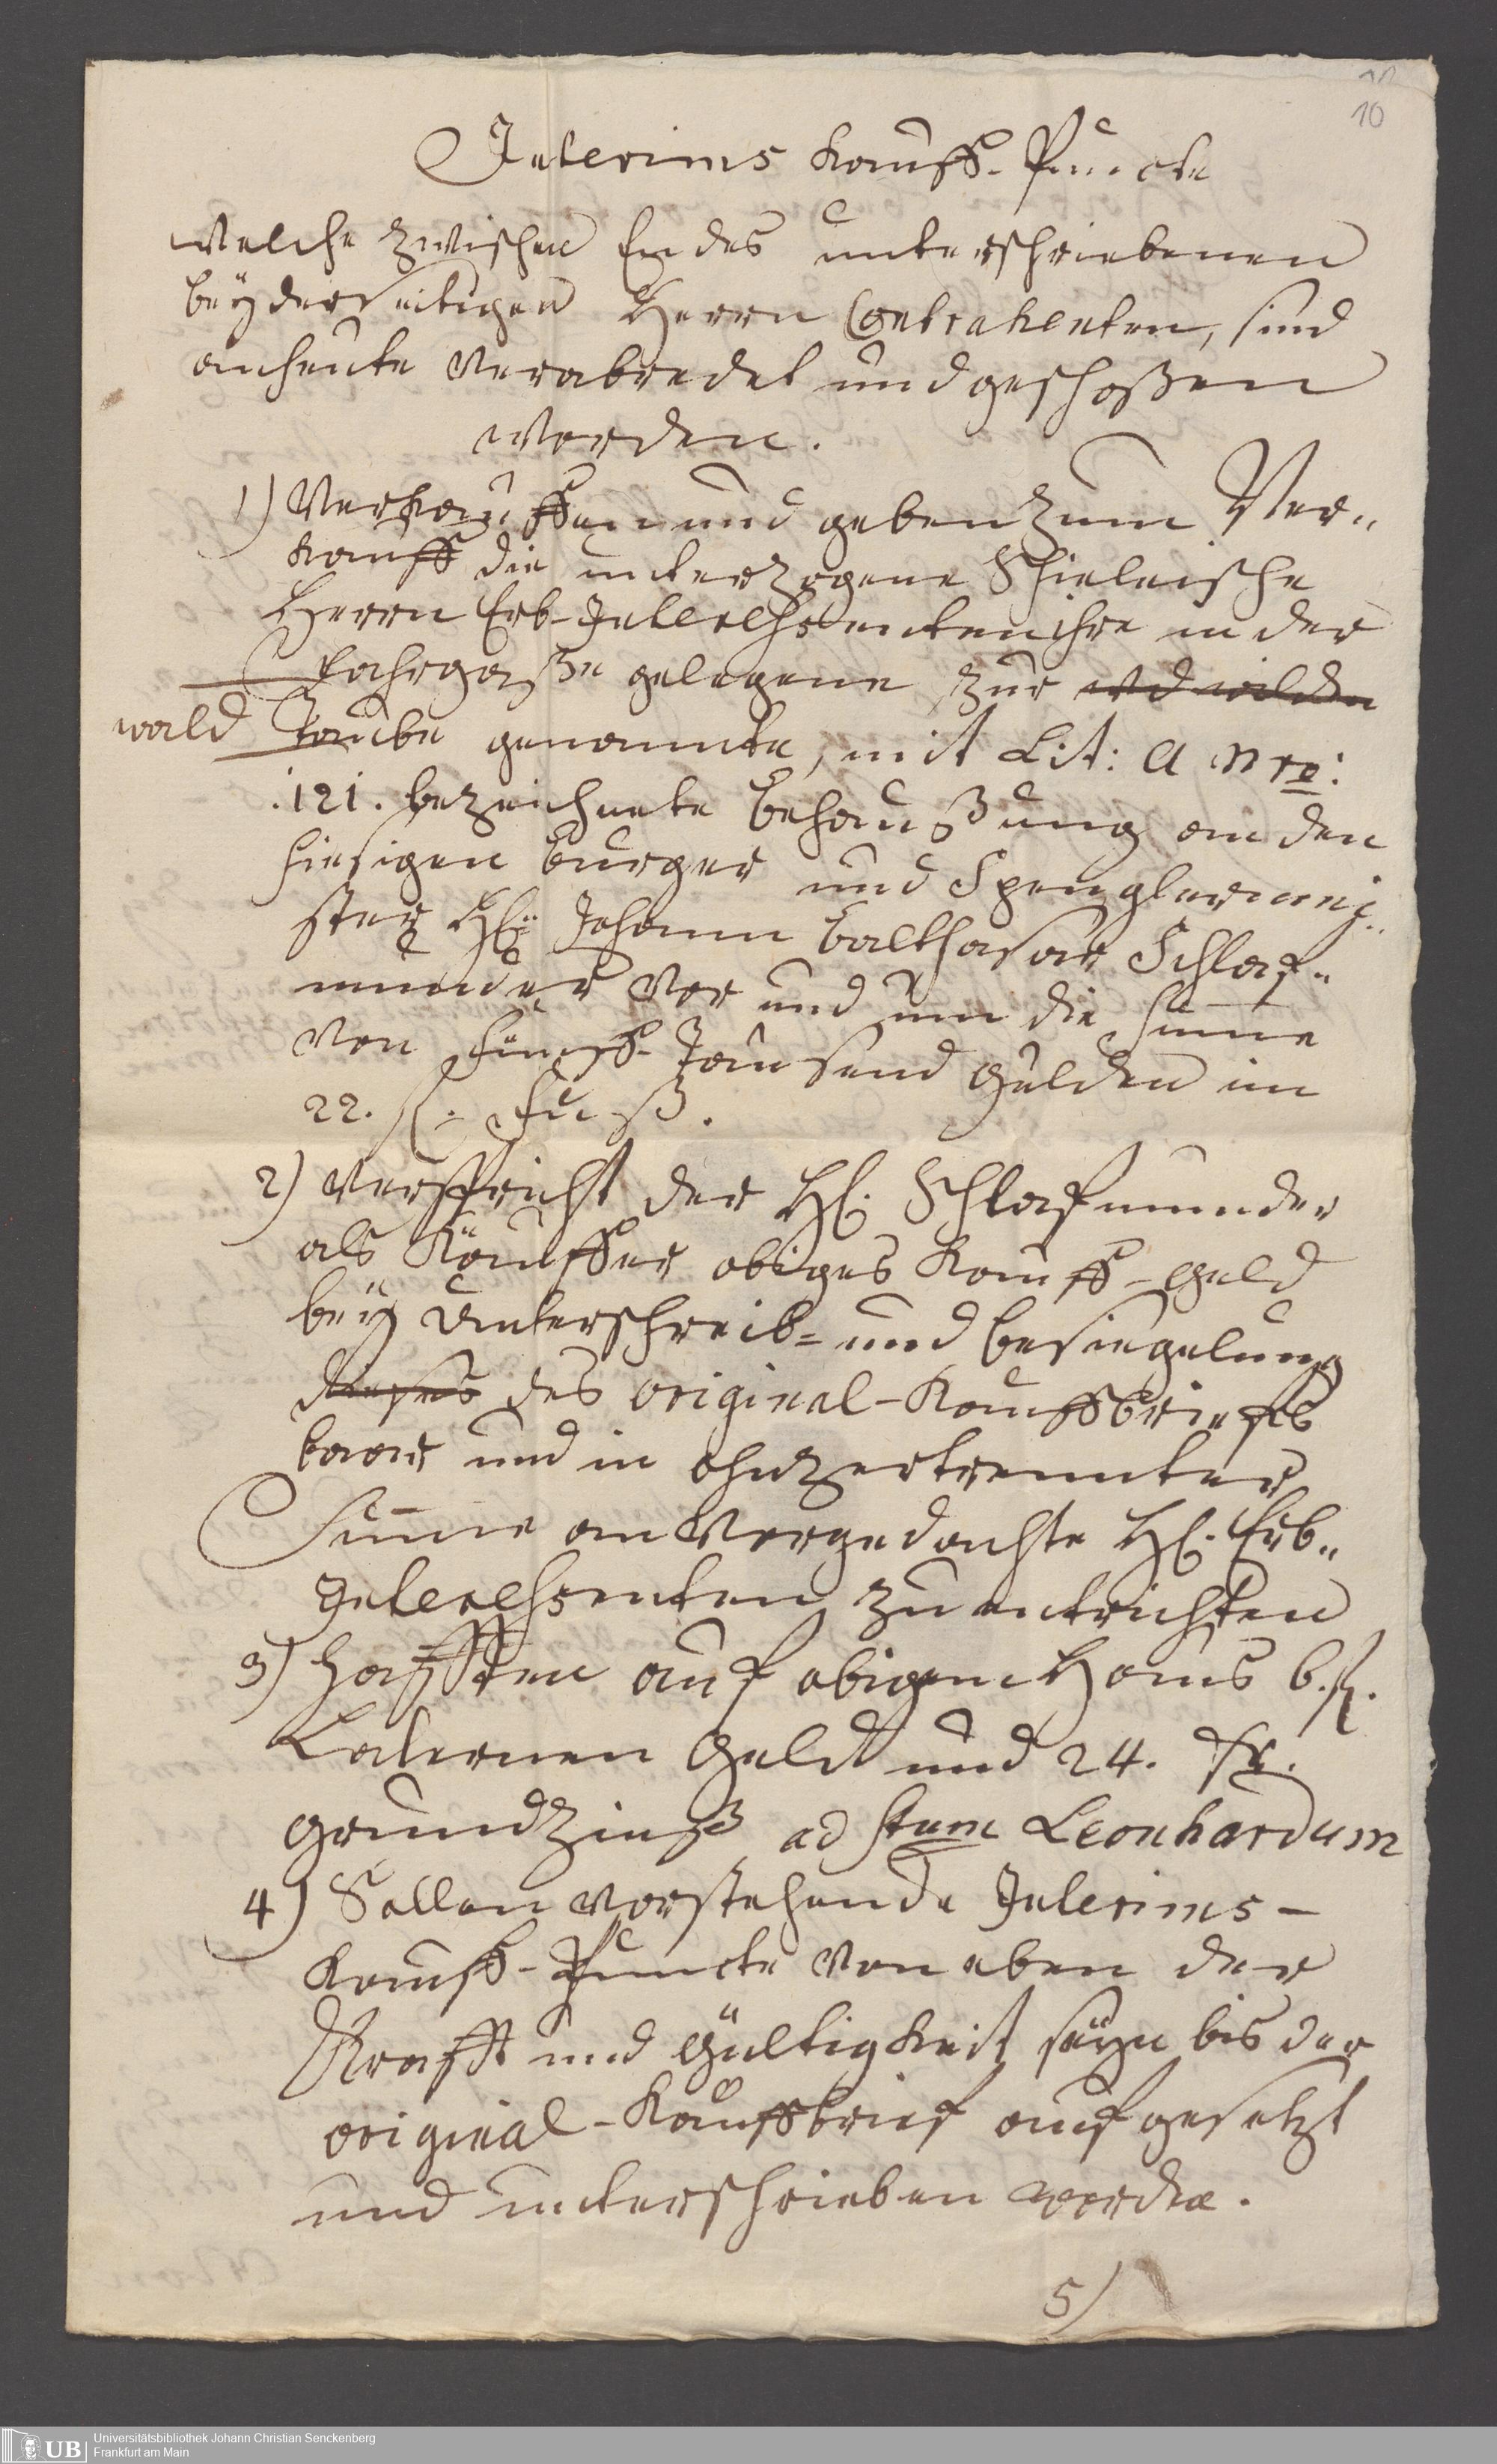 10
Interims Kauff-Puncte
welche zwischen Endes unterschriebenen
beyderseitigen Herrn Contrahenten, sind
anheute verabredet und geschloßen
worden.
1) Verkauffen und geben zum Ver„
kauff die unterzogene Thieleische
Herrn Erb-Interessenten ihre in der
Fahrgaße gelegene zur wilden
wald Taube genannte, mit Lit: A Nro:
121. bezeichnete Behaußung an den
hiesigen Burger und Spenglermei„
ster Hn Johann Balthasar Schlaf„
munder vor und um die Summe
von Fünff-Tausend Gulden im
22. f. Fuß.
2) Verspricht der H. Schlafmunder
als Käuffer obiges Kauff-geld
bey Unterschreib- und Besiegelung
dieses des original-Kauffbriefs
baar und in ohnzertrennter
Summe an Vorgedachte H. Erb„
Interessenten zu entrichten
3) Hafften auf obigem Haus 6. f.
Laternen Geld und 24. xr.
Grundzinß ad Stum Leonhardum
4) Sollen vorstehende Interims-
Kauff-Puncte von eben der
Krafft und Gültigkeit seyn bis der
original-Kauffbrief aufgesetzt
und unterschrieben worden.
5)
UB Universitätsbibliothek Johann Christian Senckenberg
Frankfurt am Main